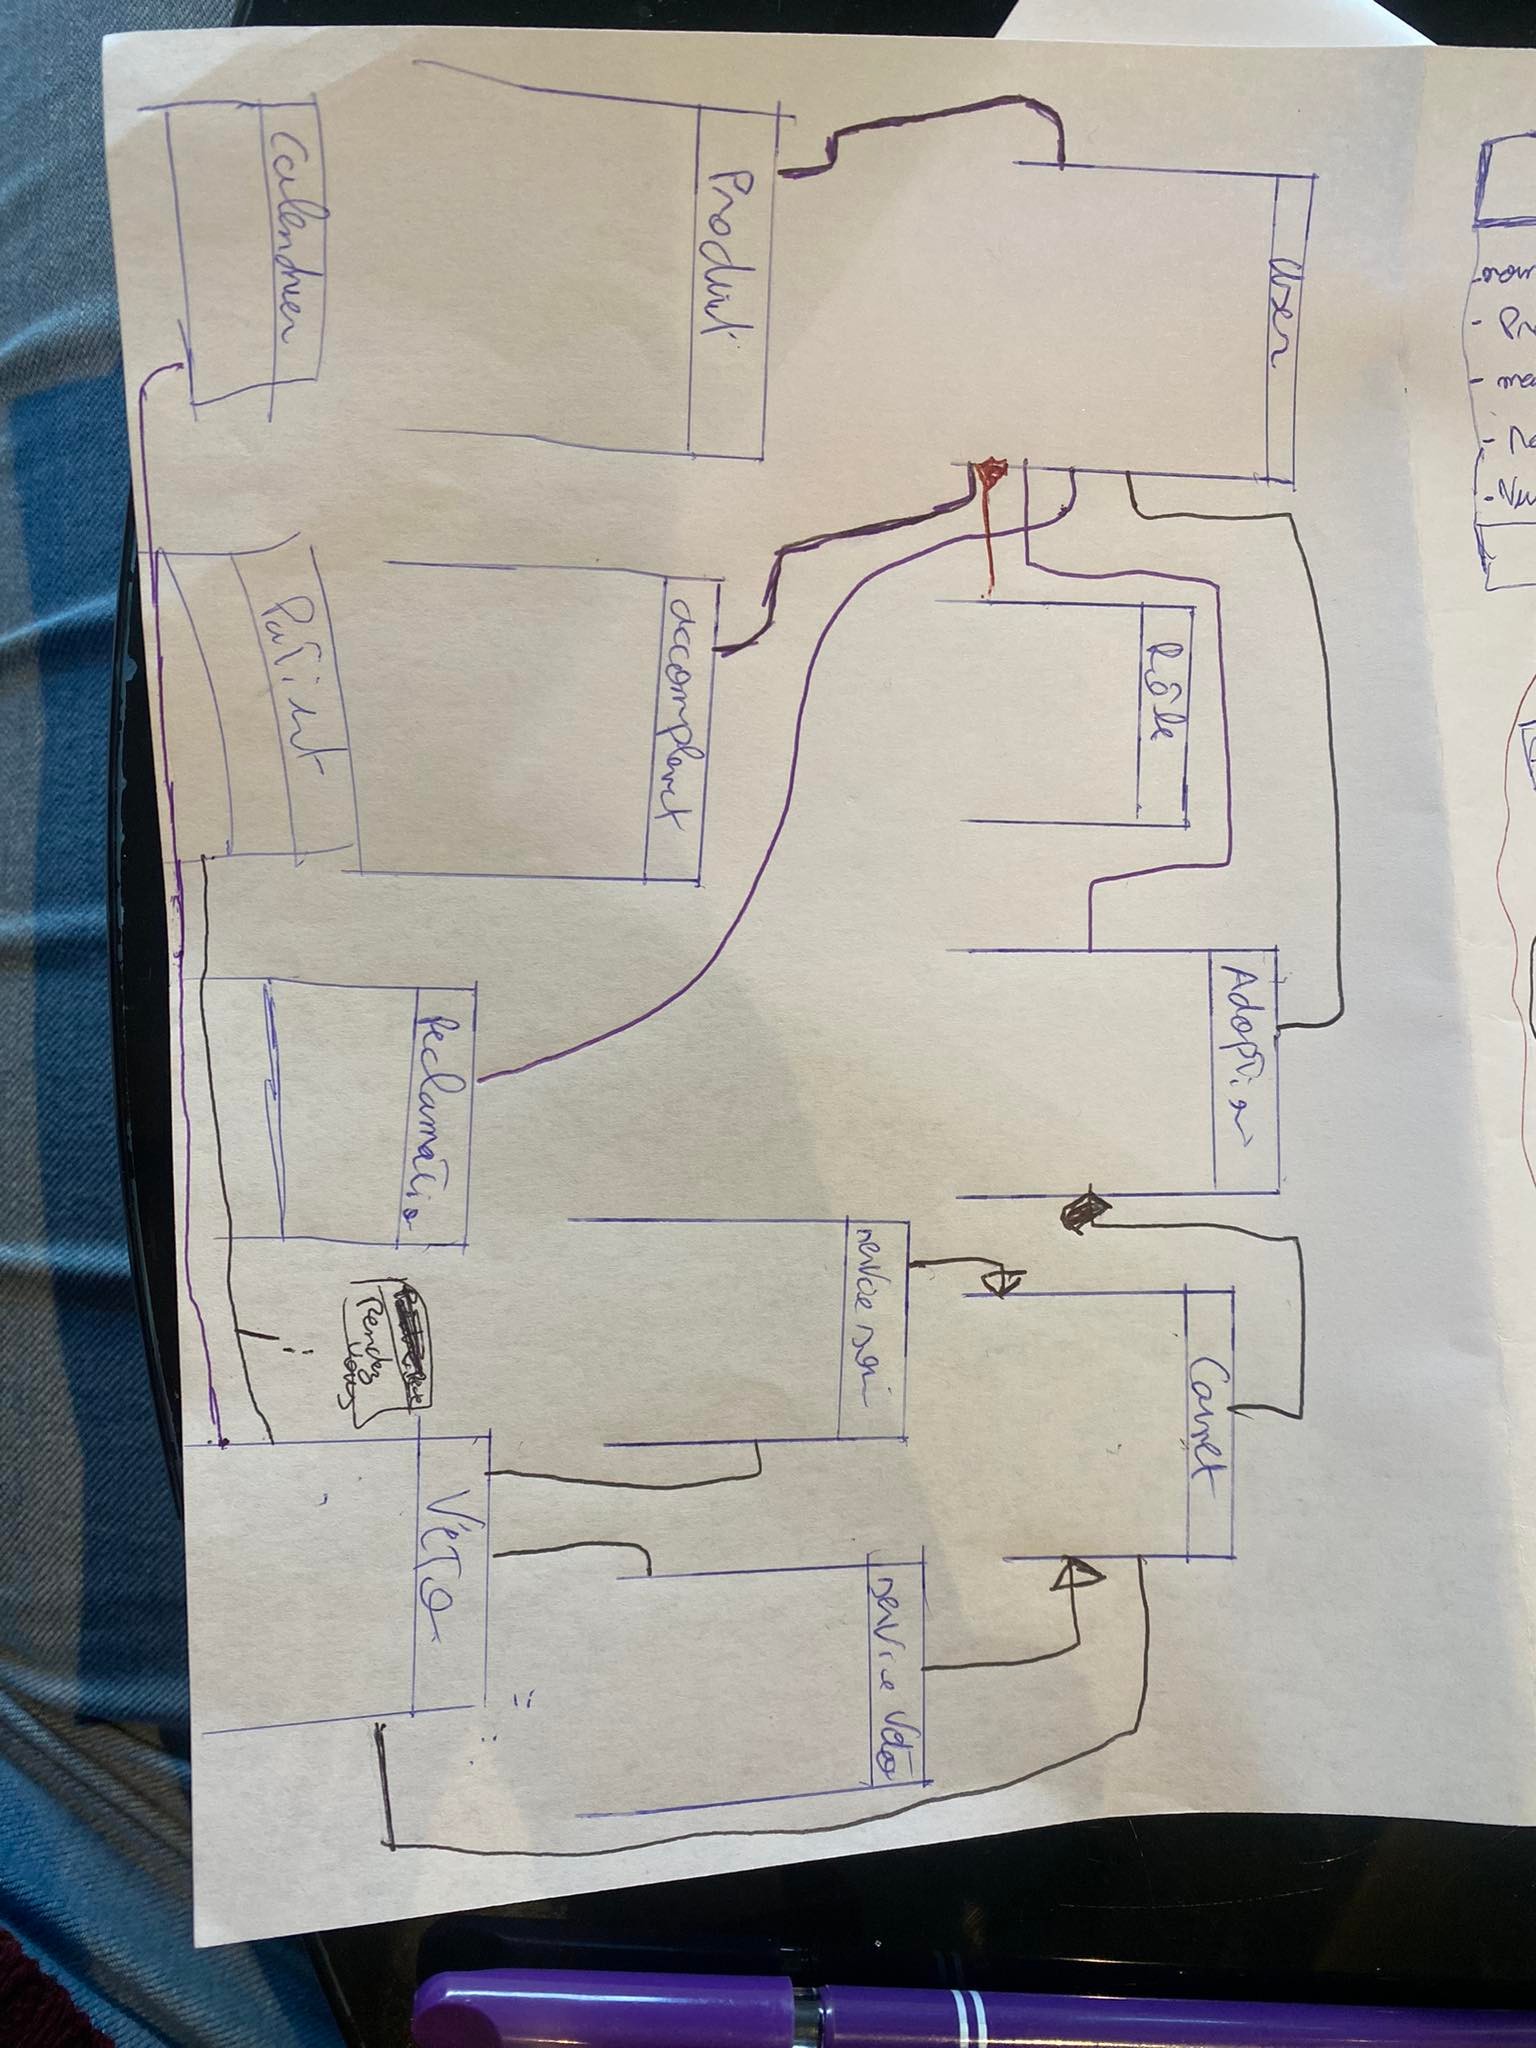 User
Adoption
Carnet
Rôle
service soin
service Véto
Produit
accomplement
Reclamation
Véto
Rendez
vous
Calendrier
Patient